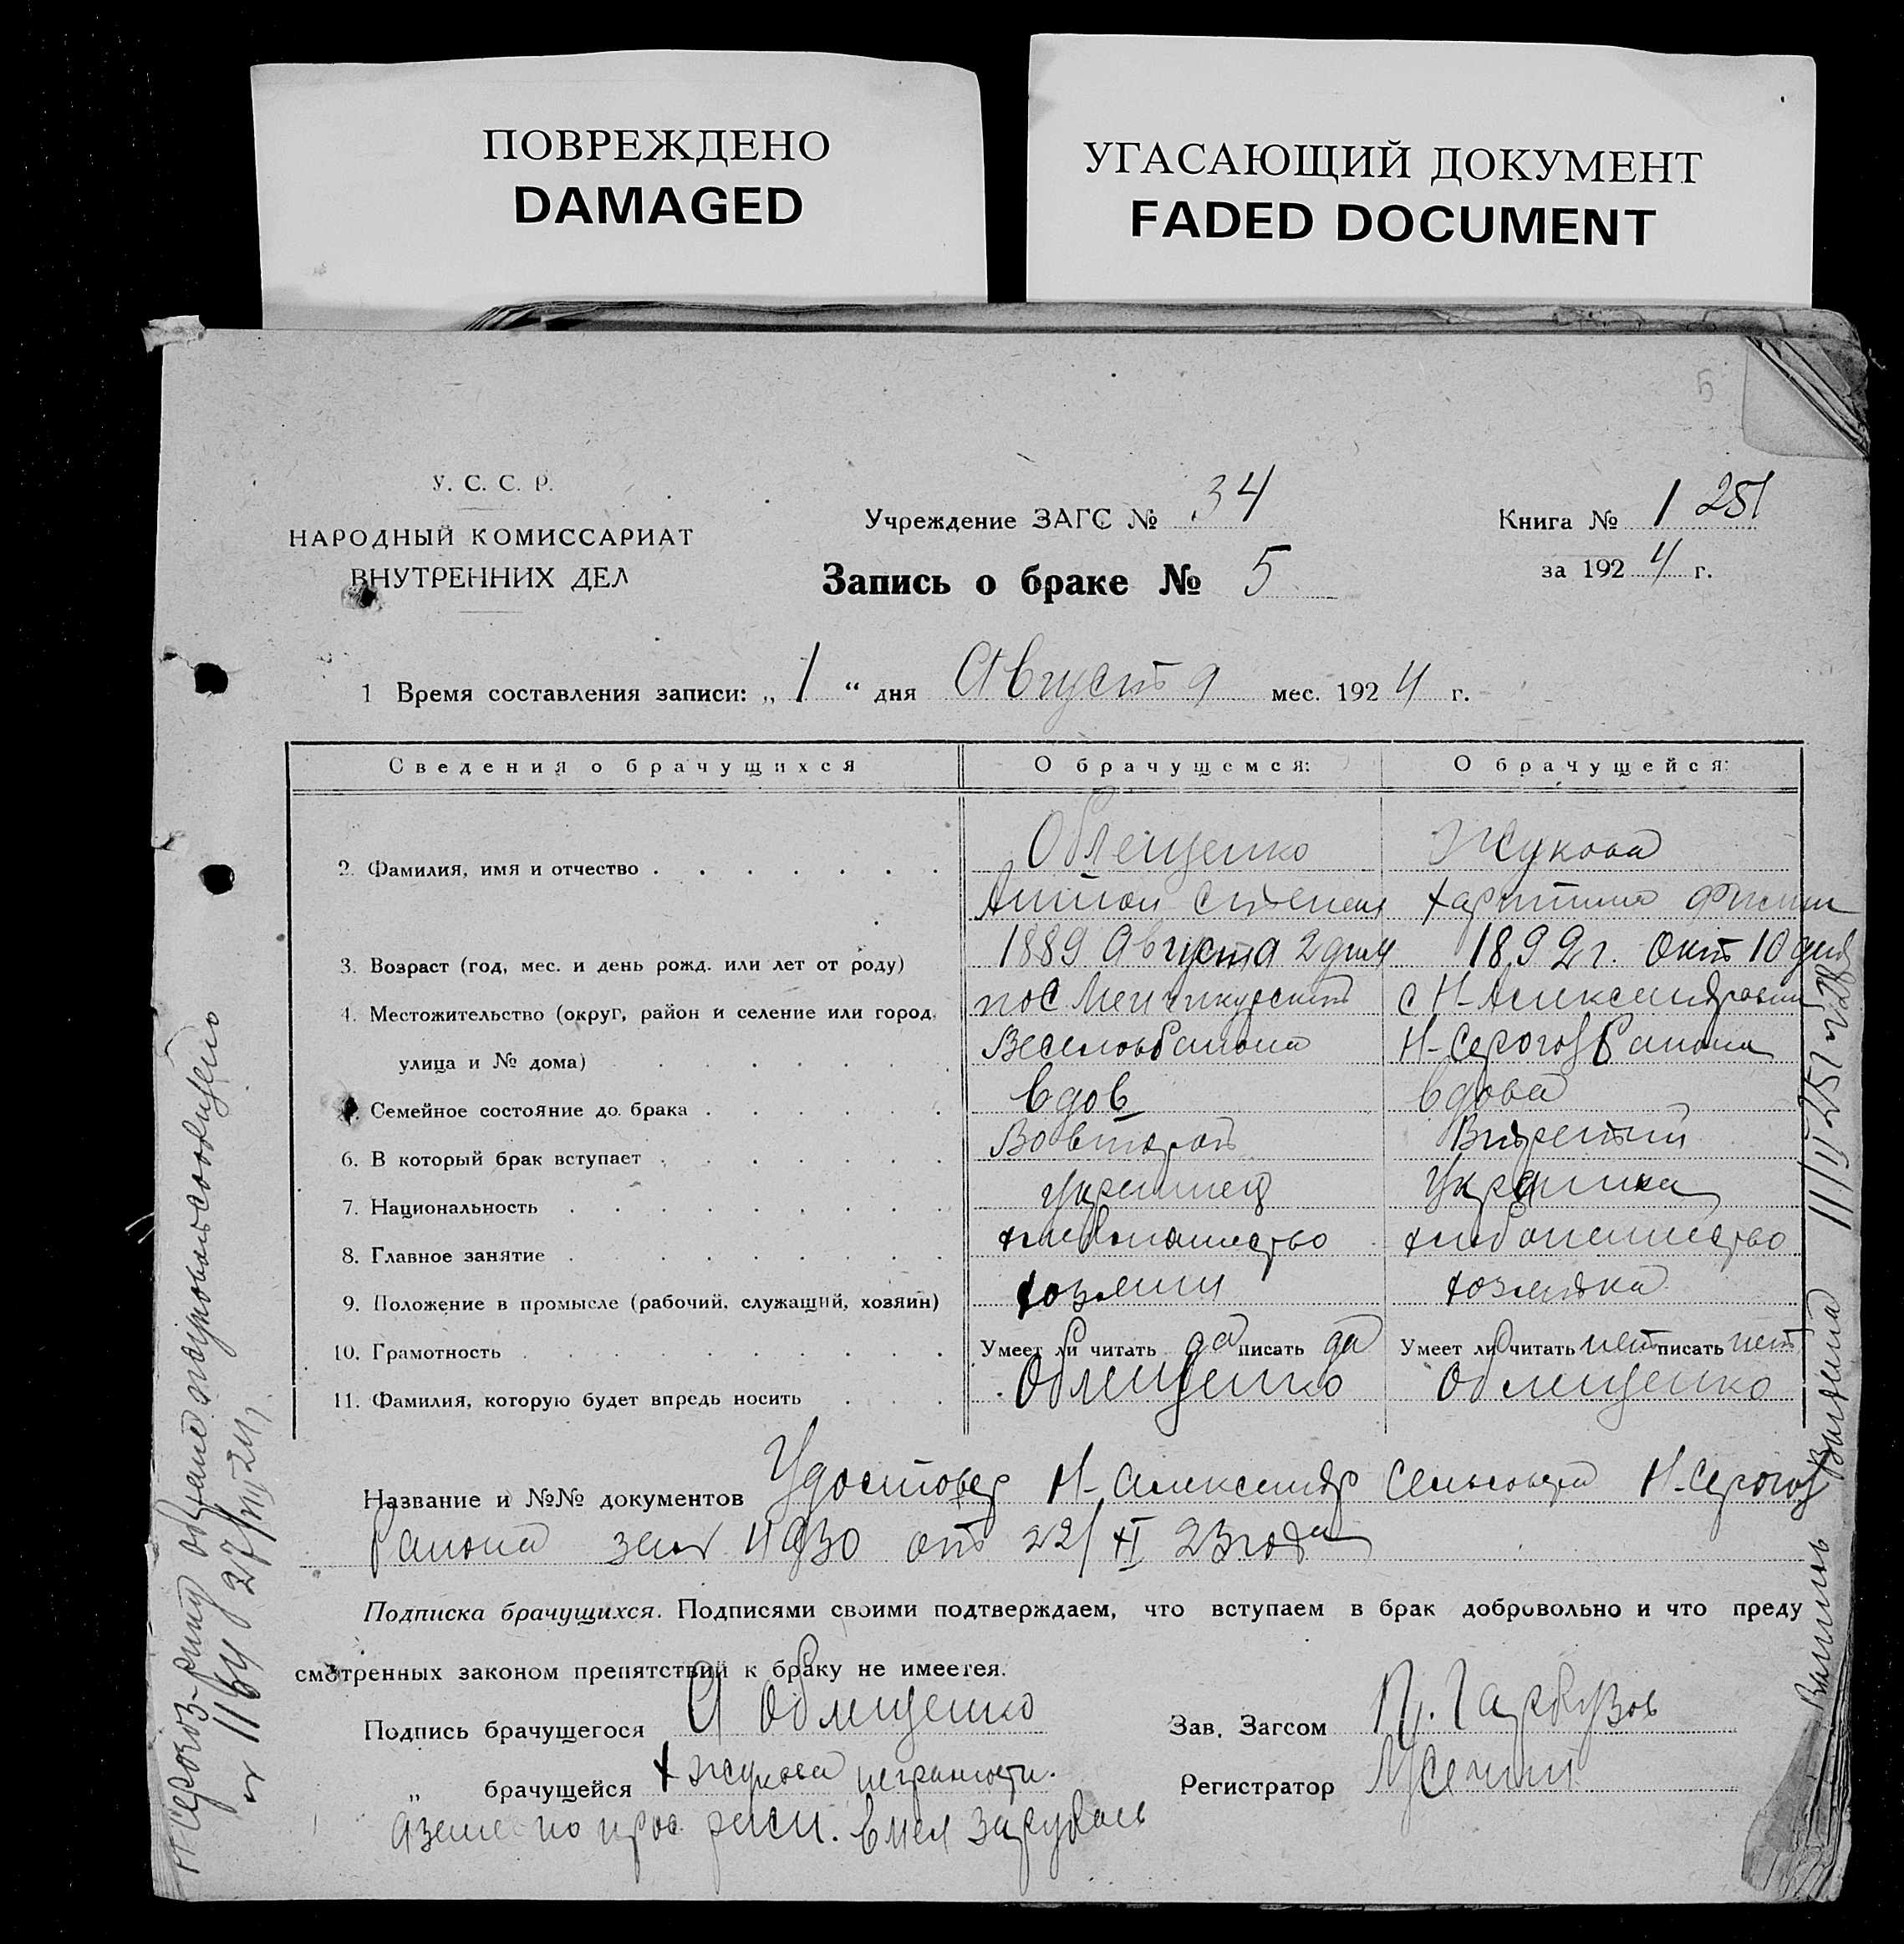 ПОВРЕЖДЕНО
DAMAGED
УГАСАЮЩИЙ ДОКУМЕНТ
FADED DOCUMENT
5
У. С. С. Р.
НАРОДНЫЙ КОМИССАРИАТ
ВНУТРЕННИХ ДЕЛ
Учреждение ЗАГС № 34
Запись о браке № 5
Книга № 1 251
за 1924 г.
1 Время составления записи: „ 1 “ дня Августа мес. 1924 г.
Сведения о брачущихся О брачущемся: О брачущейся:
2. Фамилия, имя и отчество Облещенко Жукова
Антон Степан Харитина
3. Возраст (год, мес. и день рожд. или лет от роду) 1889 Августа 2 дня 1892 г. Окт 10 дня
4. Местожительство (округ, район и селение или город, пос Менчикурский с Н-Александровки
улица и № дома) Веселов района Н-Серогоз района
Семейное состояние до брака вдов вдова
6. В который брак вступает Во второй В третий
7. Национальность украинец Украинка
8. Главное занятие хлебопашество хлебопашество
9. Положение в промысле (рабочий, служащий, хозяин) хозяин хозяйка
10. Грамотность Умеет ли читать да писать да Умеет ли читать нет писать нет
11. Фамилия, которую будет впредь носить Облещенко Облещенко
Название и №№ документов Удостовер Н-Александр Сельсовета Н-Серогоз
Района за № 930 от 22/XI 23 года
Подписка брачущихся. Подписями своими подтверждаем, что вступаем в брак добровольно и что преду
смотренных законом препятствий к браку не имеется.
Подпись брачущегося А Облещенко
Зав. Загсом П. Гарбузов
„ брачущейся Х Жукова неграмотн.
Регистратор
а за нее по прос
Н Серогоз-
№ 1164 27/VIII 24
11/II 251 № 28